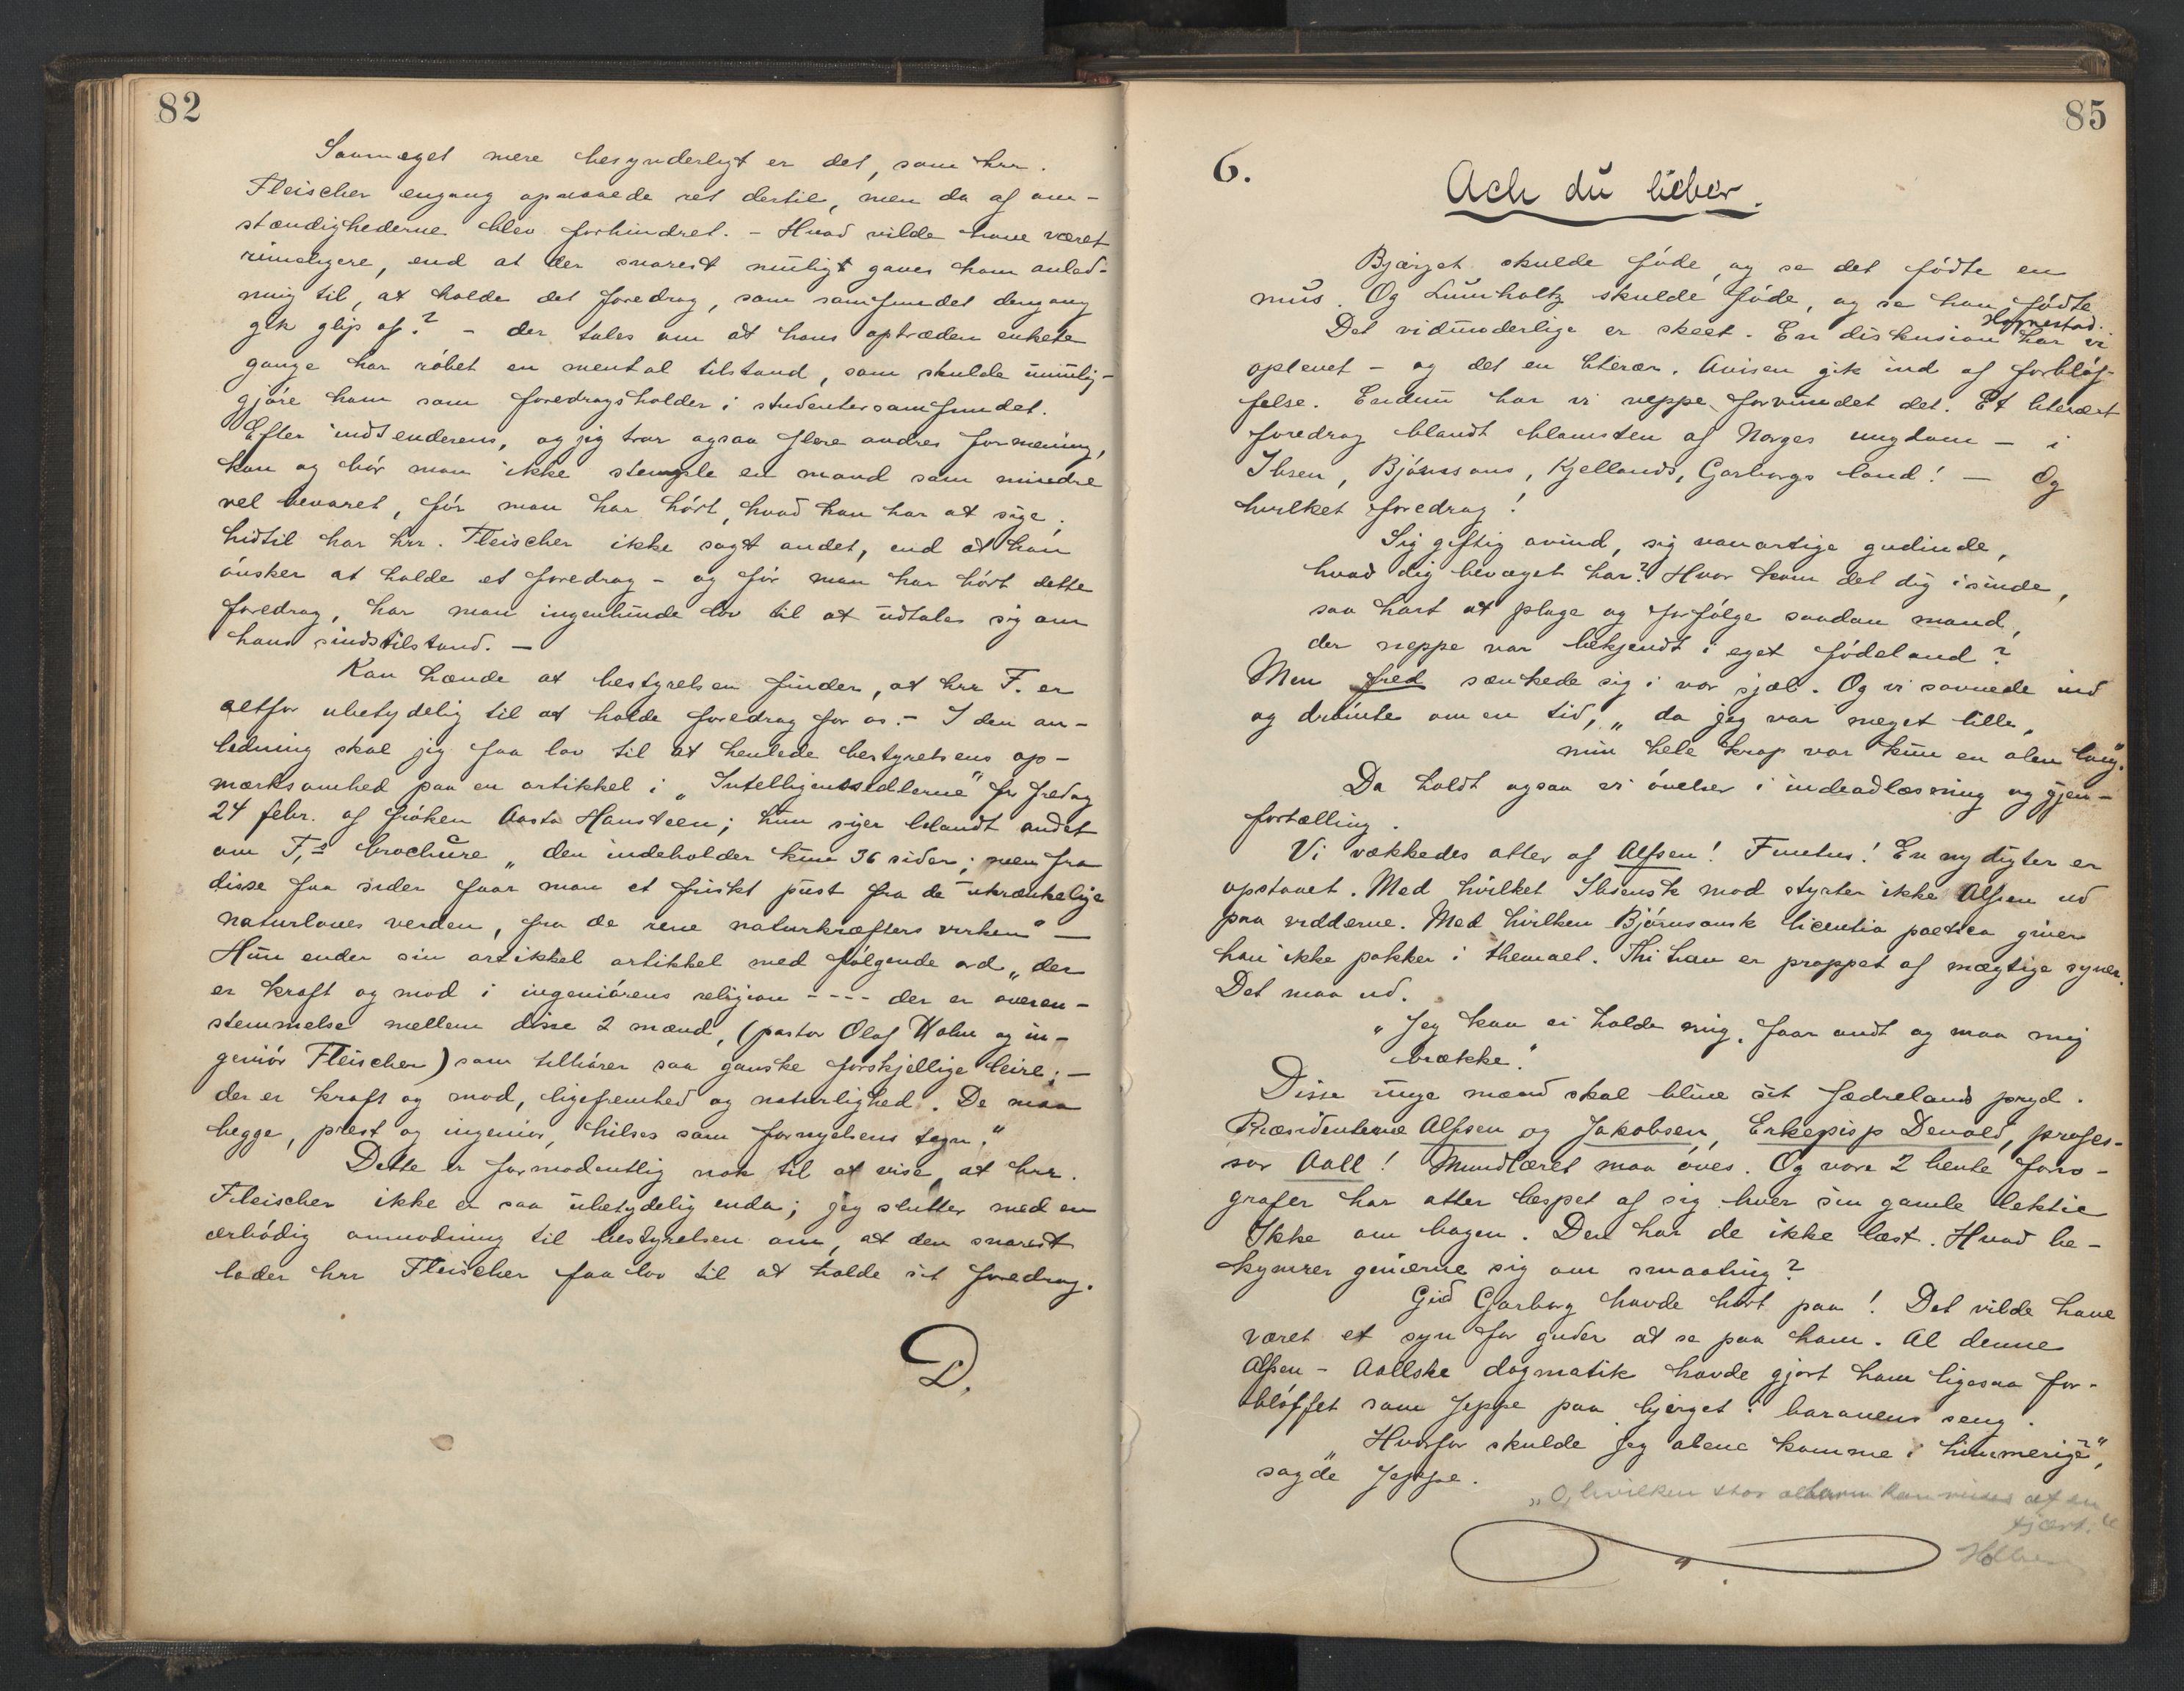 82
Saameget mere besynderligt er det, som hrr.
Fleischer engang opnaaede ret dertil, men da af om-
stændighederne blev forhindret. - Hvad vilde have været
rimeligere, end at der snarest muligt gaves ham anled-
ning til, at holde det foredrag, som samfundet dengang
gik glip af? - der tales om at hans optræden enkelte
gange har røbet en mental tilstand, som skulde umulig-
gjøre ham som foredragsholder i studentersamfundet.
Efter indsenderens, og jeg tror ogsaa flere andres formening,
kan og bør man ikke stemple en mand som mindre
vel bevaret, før man har hørt, hvad han har at sige;
hidtil har hrr. Fleischer ikke sagt andet, end at han
ønsker at holde et foredrag - og før man har hørt dette
foredrag, har man ingenlunde lov til at udtale sig om
hans sindstilstand. -
Kan hænde at bestyrelsen finder, at hrr F. er
altfor ubetydelig til at holde foredrag for os. - I den an-
ledning skal jeg faa lov til at henlede bestyrelsens op-
mærksomhed paa en artikkel i „Intelligenssedlerne" for fredag
24 febr. af frøken Aasta Hansteen; hun siger blandt andet
om F,s brochure „den indeholder kun 36 sider; men fra
disse faa sider faar man et friskt pust fra de ukrænkelige
naturloves verden, fra de rene naturkræfters virken" -
Hun ender sin artikkel artikkel med følgende ord „der
er kraft og mod i ingeniørens religion ---- der er overen-
stemmelse mellem disse 2 mænd, (pastor Olaf Holm og in-
geniør Fleischer) som tilhører saa ganske forskjellige leire; -
der er kraft og mod, ligefremhed og naturlighed. De maa
begge, prest og ingeniør, hilses som fornyelsens tegn."
Dette er formodentlig nok til at vise, at hrr.
Fleischer ikke er saa ubetydelig enda; jeg slutter med en
ærbødig anmodning til bestyrelsen om, at den snarest
lader hrr Fleischer faa lov til at holde sit foredrag.
D.
85
6.
Ach du lieber.
Bjærget skulde føde, og se det fødte en
mus. Og Lumholtz skulde føde, og se han fødte
Hognestad.
Det vidunderlige er skeet. En diskusion har vi
oplevet - og det en literær. Avisen gik ind af forbløf-
felse. Endnu har vi neppe forvundet det. Et literært
foredrag blandt blomsten af Norges ungdom - i
Ibsen, Bjørnsons, Kjellands, Garborgs land! - Og
hvilket foredrag!
Sig giftig avind, sig vanartige gudinde,
hvad dig bevæget har? Hvor kom det dig isinde,
saa hart at plage og forfølge saadan mand,
der neppe var bekjendt i eget fødeland?
Men fred sænkede sig i vor sjæl. Og vi sovnede ind
og drømte om en tid, „da jeg var meget lille,
min hele krop var kun en alen lang".
Da holdt ogsaa vi øvelser i indenadlæsning og gjen-
fortælling.
Vi vækkedes atter af Alfsen! En ny digter er
opstaaet. Med hvilket Ibsensk mod styrter ikke Alfsen ud
paa vidderne. Med hvilken Bjørnsonsk licentia poetica giver
han ikke pokker i themaet. Thi han er proppet af mægtige syner.
Det maa ud.
„Jeg kan ei holde mig, faar ondt og maa mig
brække."
Disse unge mænd skal blive sit fædrelands pryd.
Præsidenterne Alfsen og Jakobsen, Erkepisp Devold, profes-
sor Aall! Mundlæret maa øves. Og vore 2 hente fono-
grafer har atter læspet af sig hver sin gamle lektie
Ikke om bogen. Den har de ikke læst. Hvad be-
kymrer genierne sig om smaating?
Gid Garborg havde hørt paa! Det vilde have
været et syn for guder at se paa ham. Al denne
Alfsen - Aallske dogmatik havde gjort ham ligesaa for-
bløffet som Jeppe paa bjerget i baronens seng.
„Hvorfor skulde jeg alene komme i himmerige?",
sagde Jeppe.
„O, hvilken stor alarm kan reises af en
fjært."